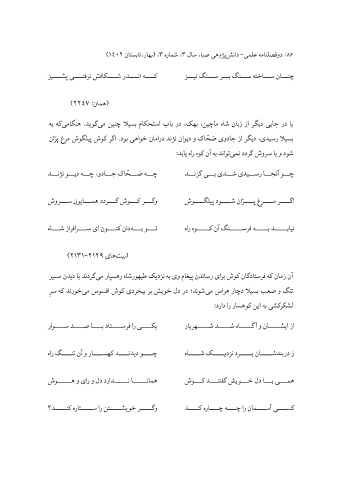 ۸۶/ دوفصلنامه علمی- دانش‌پژوهی صبا، سال ۳، شماره ۳، (بهار،تابستان ۱۴۰۲)
چنان ساخته سنگ بر سنگ نیز که اندر شکافش نرفتی پشیز
(همان: ۲۲۴۷)
یا در جایی دیگر از زبان شاه ماچین، بهک، در باب استحکام بسیلا چنین می‌گوید. هنگامی‌که به
بسیلا رسیدی، دیگر از جادوی ضحّاک و دیوان نژند درامان خواهی بود. اگر کوش پیلگوش مرغ پرّان
شود و یا سروش گردد نمی‌تواند به آن کوه راه یابد:
چو آنجا رسیدی شدی بی گزند چه ضحّاک جادو، چه دیو نژند
اگر مرغ پرّان شود پیلگوش وگر کوش گردد همایون سروش
نیابد به فرسنگ آن کوه راه تو بدان کنون ای سرافراز شاه
(بیت‌های ۲۱۲۹-۲۱۳۱)
آن زمان که فرستادگان کوش برای رساندن پیغام وی به نزدیک طیهورشاه رهسپار می‌گردند با دیدن مسیر
تنگ و صعب بسیلا دچار هراس می‌شوند؛ در دل خویش بر بیخردی کوش افسوس می‌خورند که سرِ
لشکرکشی به این کوهسار را دارد:
از ایشان و آگاه شد شهریار یکی را فرستاد با صد سوار
ز دربندشان برد نزدیک شاه چو دیدند کهسار و آن تنگ راه
همی با دل خویش گفتند کوش همانا ندارد دل و رای و هوش
کسی آسمان را چه چاره کند وگر خویشتن را ستاره کند؟